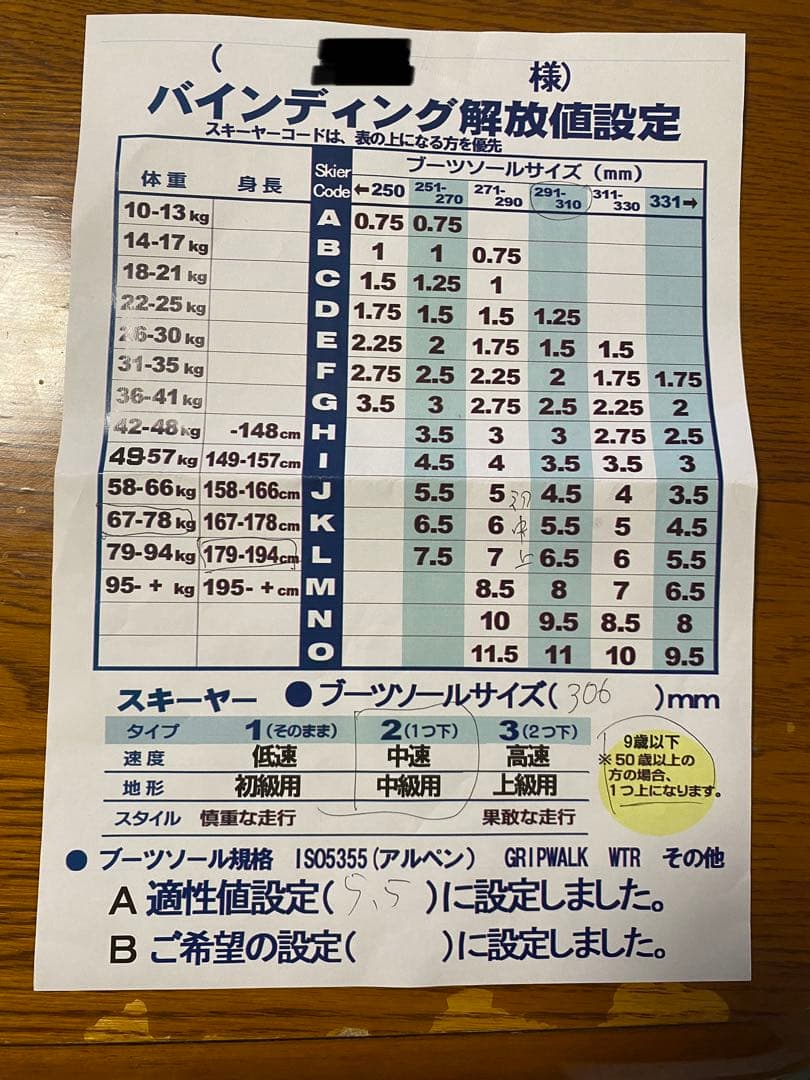 ( 様)
バインディング解放値設定
スキーヤーコードは、表の上になる方を優先
体重 身長 Skier Code ブーツソールサイズ (mm)
←250 251-270 271-290 291-310 311-330 331→
10-13 kg A 0.75 0.75
14-17 kg B 1 1 0.75
18-21 kg C 1.5 1.25 1
22-25 kg D 1.75 1.5 1.5 1.25
26-30 kg E 2.25 2 1.75 1.5 1.5
31-35 kg F 2.75 2.5 2.25 2 1.75 1.75
36-41 kg G 3.5 3 2.75 2.5 2.25 2
42-48 kg -148cm H 3.5 3 3 2.75 2.5
49-57 kg 149-157cm I 4.5 4 3.5 3.5 3
58-66 kg 158-166cm J 5.5 5 4.5 4 3.5
67-78 kg 167-178cm K 6.5 6 中 5.5 5 4.5
79-94 kg 179-194cm L 7.5 7 上 6.5 6 5.5
95- + kg 195- + cm M 8.5 8 7 6.5
N 10 9.5 8.5 8
O 11.5 11 10 9.5
スキーヤー ●ブーツソールサイズ(306)mm
タイプ 1(そのまま) 2(1つ下) 3(2つ下)
速度 低速 中速 高速
地形 初級用 中級用 上級用
スタイル 慎重な走行 果敢な走行
9歳以下
※50歳以上の
方の場合、
1つ上になります。
● ブーツソール規格 ISO5355(アルペン) GRIPWALK WTR その他
A 適性値設定(5.5)に設定しました。
B ご希望の設定( )に設定しました。